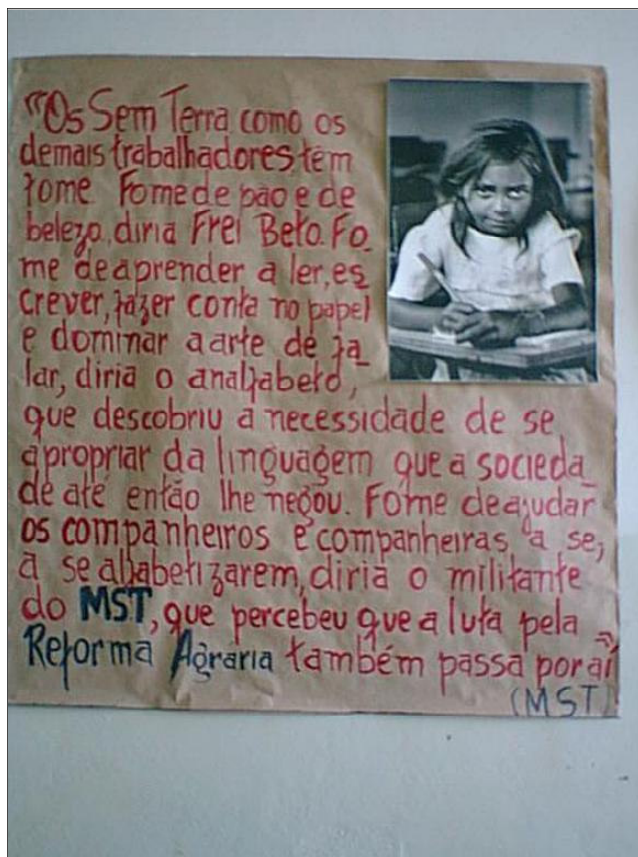 "Os Sem Terra como os
demais trabalhadores, têm
fome. Fome de pão e de
beleza, diria Frei Beto. Fo_
me de aprender a ler, es_
crever, fazer conta no papel
e dominar a arte de fa_
lar, diria o analfabeto,
que descobriu a necessidade de se
apropriar da linguagem que a socieda_
de até então lhe negou. Fome de ajudar
os companheiros e companheiras, a se,
a se alfabetizarem, diria o militante
do MST, que percebeu que a luta pela
Reforma Agraria também passa por aí"
(MST)